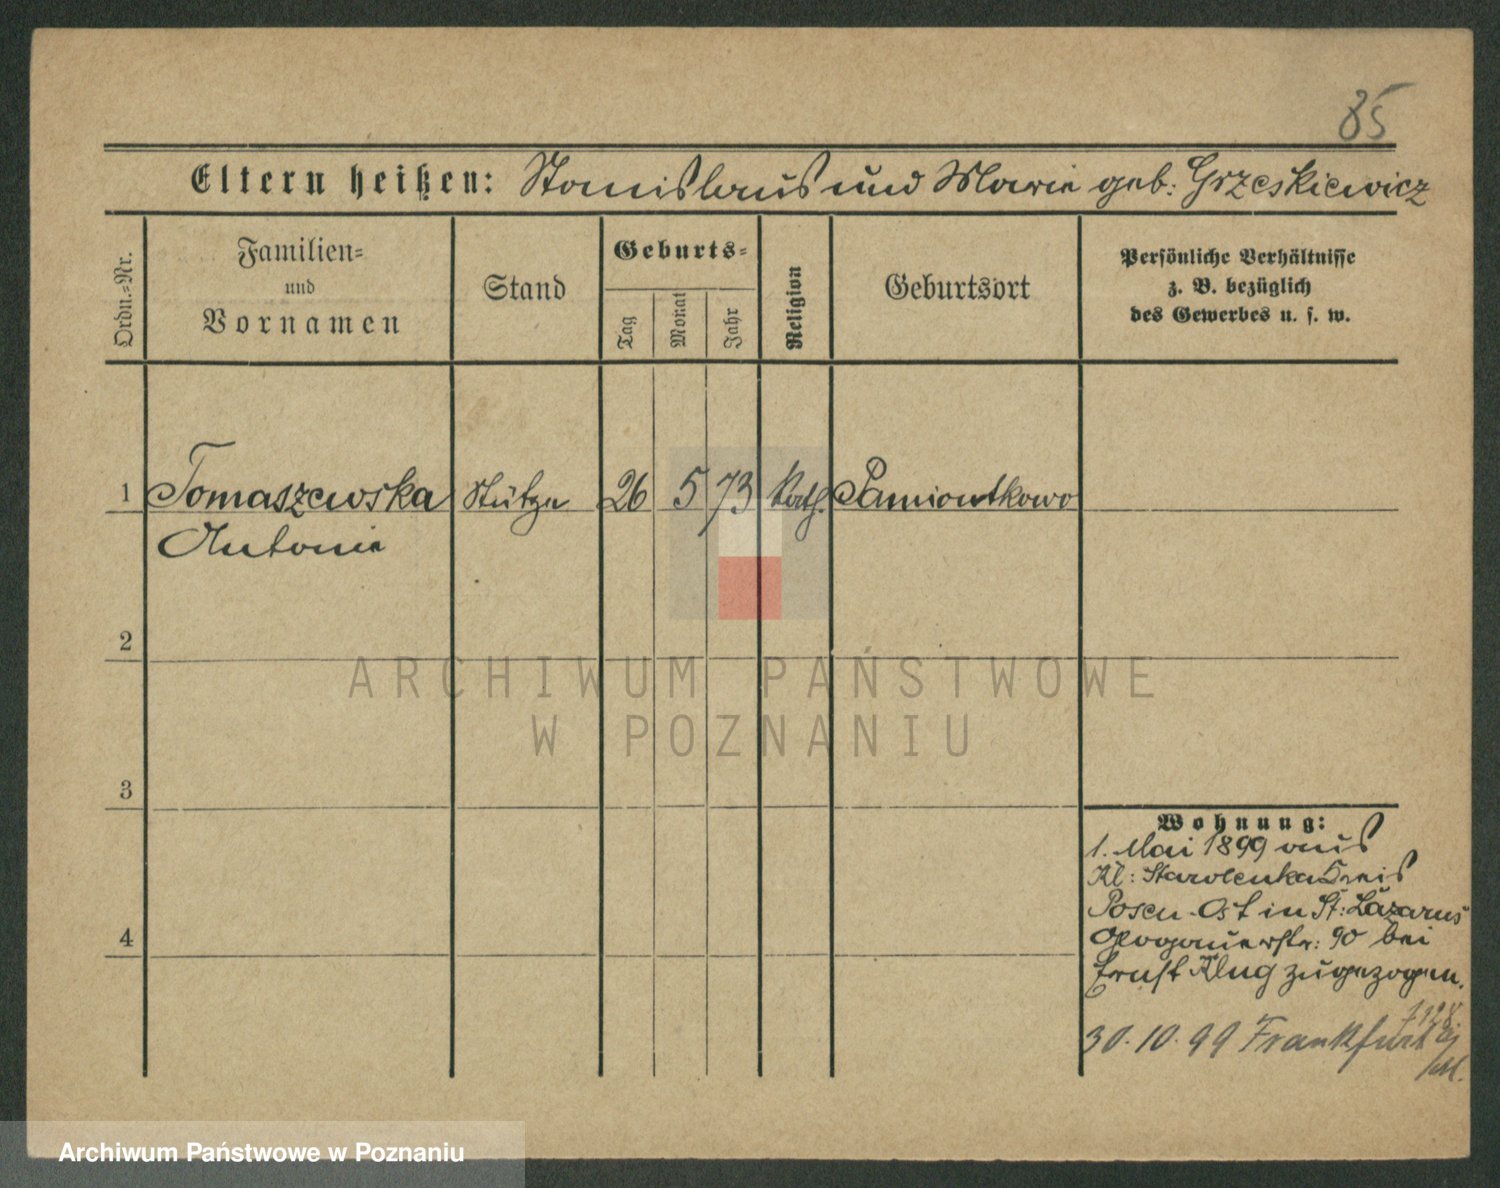 85
Eltern heißen: Stanislaus und Marie geb: Grzeskiewicz
Ordn.-Nr.
Familien-
und
Vornamen
Stand
Geburts-
Tag
Monat
Jahr
Religion
Geburtsort
Persönliche Verhältnisse
z. B. bezüglich
des Gewerbes u. s. w.
1 Tomaszewska Stütze 26 5 73 Kath. Pamiontkowo
Antonie
2
ARCHIWUM PAŃSTWOWE
W POZNANIU
3
Wohnung:
1. Mai 1899 aus
Kl: Starolenka Kreis
Posen-Ost in St: Lazarus
Glogauerstr: 90 bei
Ernst Klug zugezogen.
4
30.10.99 Frankfurt
Archiwum Państwowe w Poznaniu